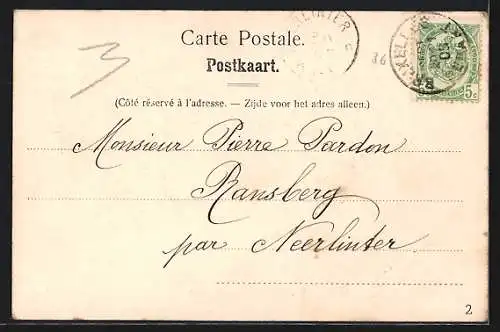 Carte Postale.
Postkaart.
(Côté réservé à l'adresse. — Zijde voor het adres alleen.)
Monsieur Pierre Pardon
Ransberg
par Neerlinter
5c
2